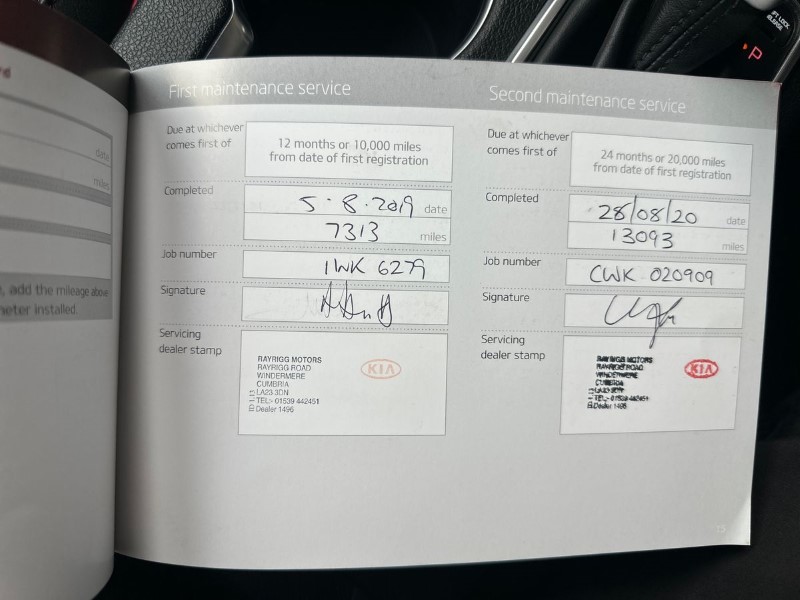 rd
date
miles
, add the mileage above
meter installed.
First maintenance service
Due at whichever
comes first of
12 months or 10,000 miles
from date of first registration
Completed
5·8·2019 date
7313 miles
Job number
1WK 6279
Signature
Servicing
dealer stamp
RAYRIGG MOTORS
RAYRIGG ROAD
WINDERMERE
CUMBRIA
LA23 3DN
TEL:- 01539 442451
Dealer 1496
KIA
Second maintenance service
Due at whichever
comes first of
24 months or 20,000 miles
from date of first registration
Completed
28/08/20 date
13093 miles
Job number
CWK 020909
Signature
Servicing
dealer stamp
RAYRIGG MOTORS
RAYRIGG ROAD
WINDERMERE
CUMBRIA
LA23 3DN
TEL:- 01539 442451
Dealer 1496
KIA
LOCK
RELEASE
P